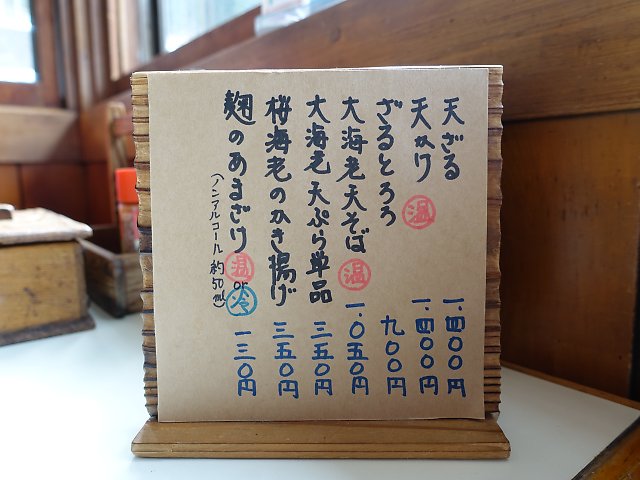 天ざる 一、四〇〇円
天かけ 温 一、四〇〇円
ざるとろろ 九〇〇円
大海老天そば 温 一、〇五〇円
大海老天ぷら単品 三五〇円
桜海老のかき揚げ 三五〇円
麹のあまざけ 温 or 冷 一三〇円
(ノンアルコール 約50ml)